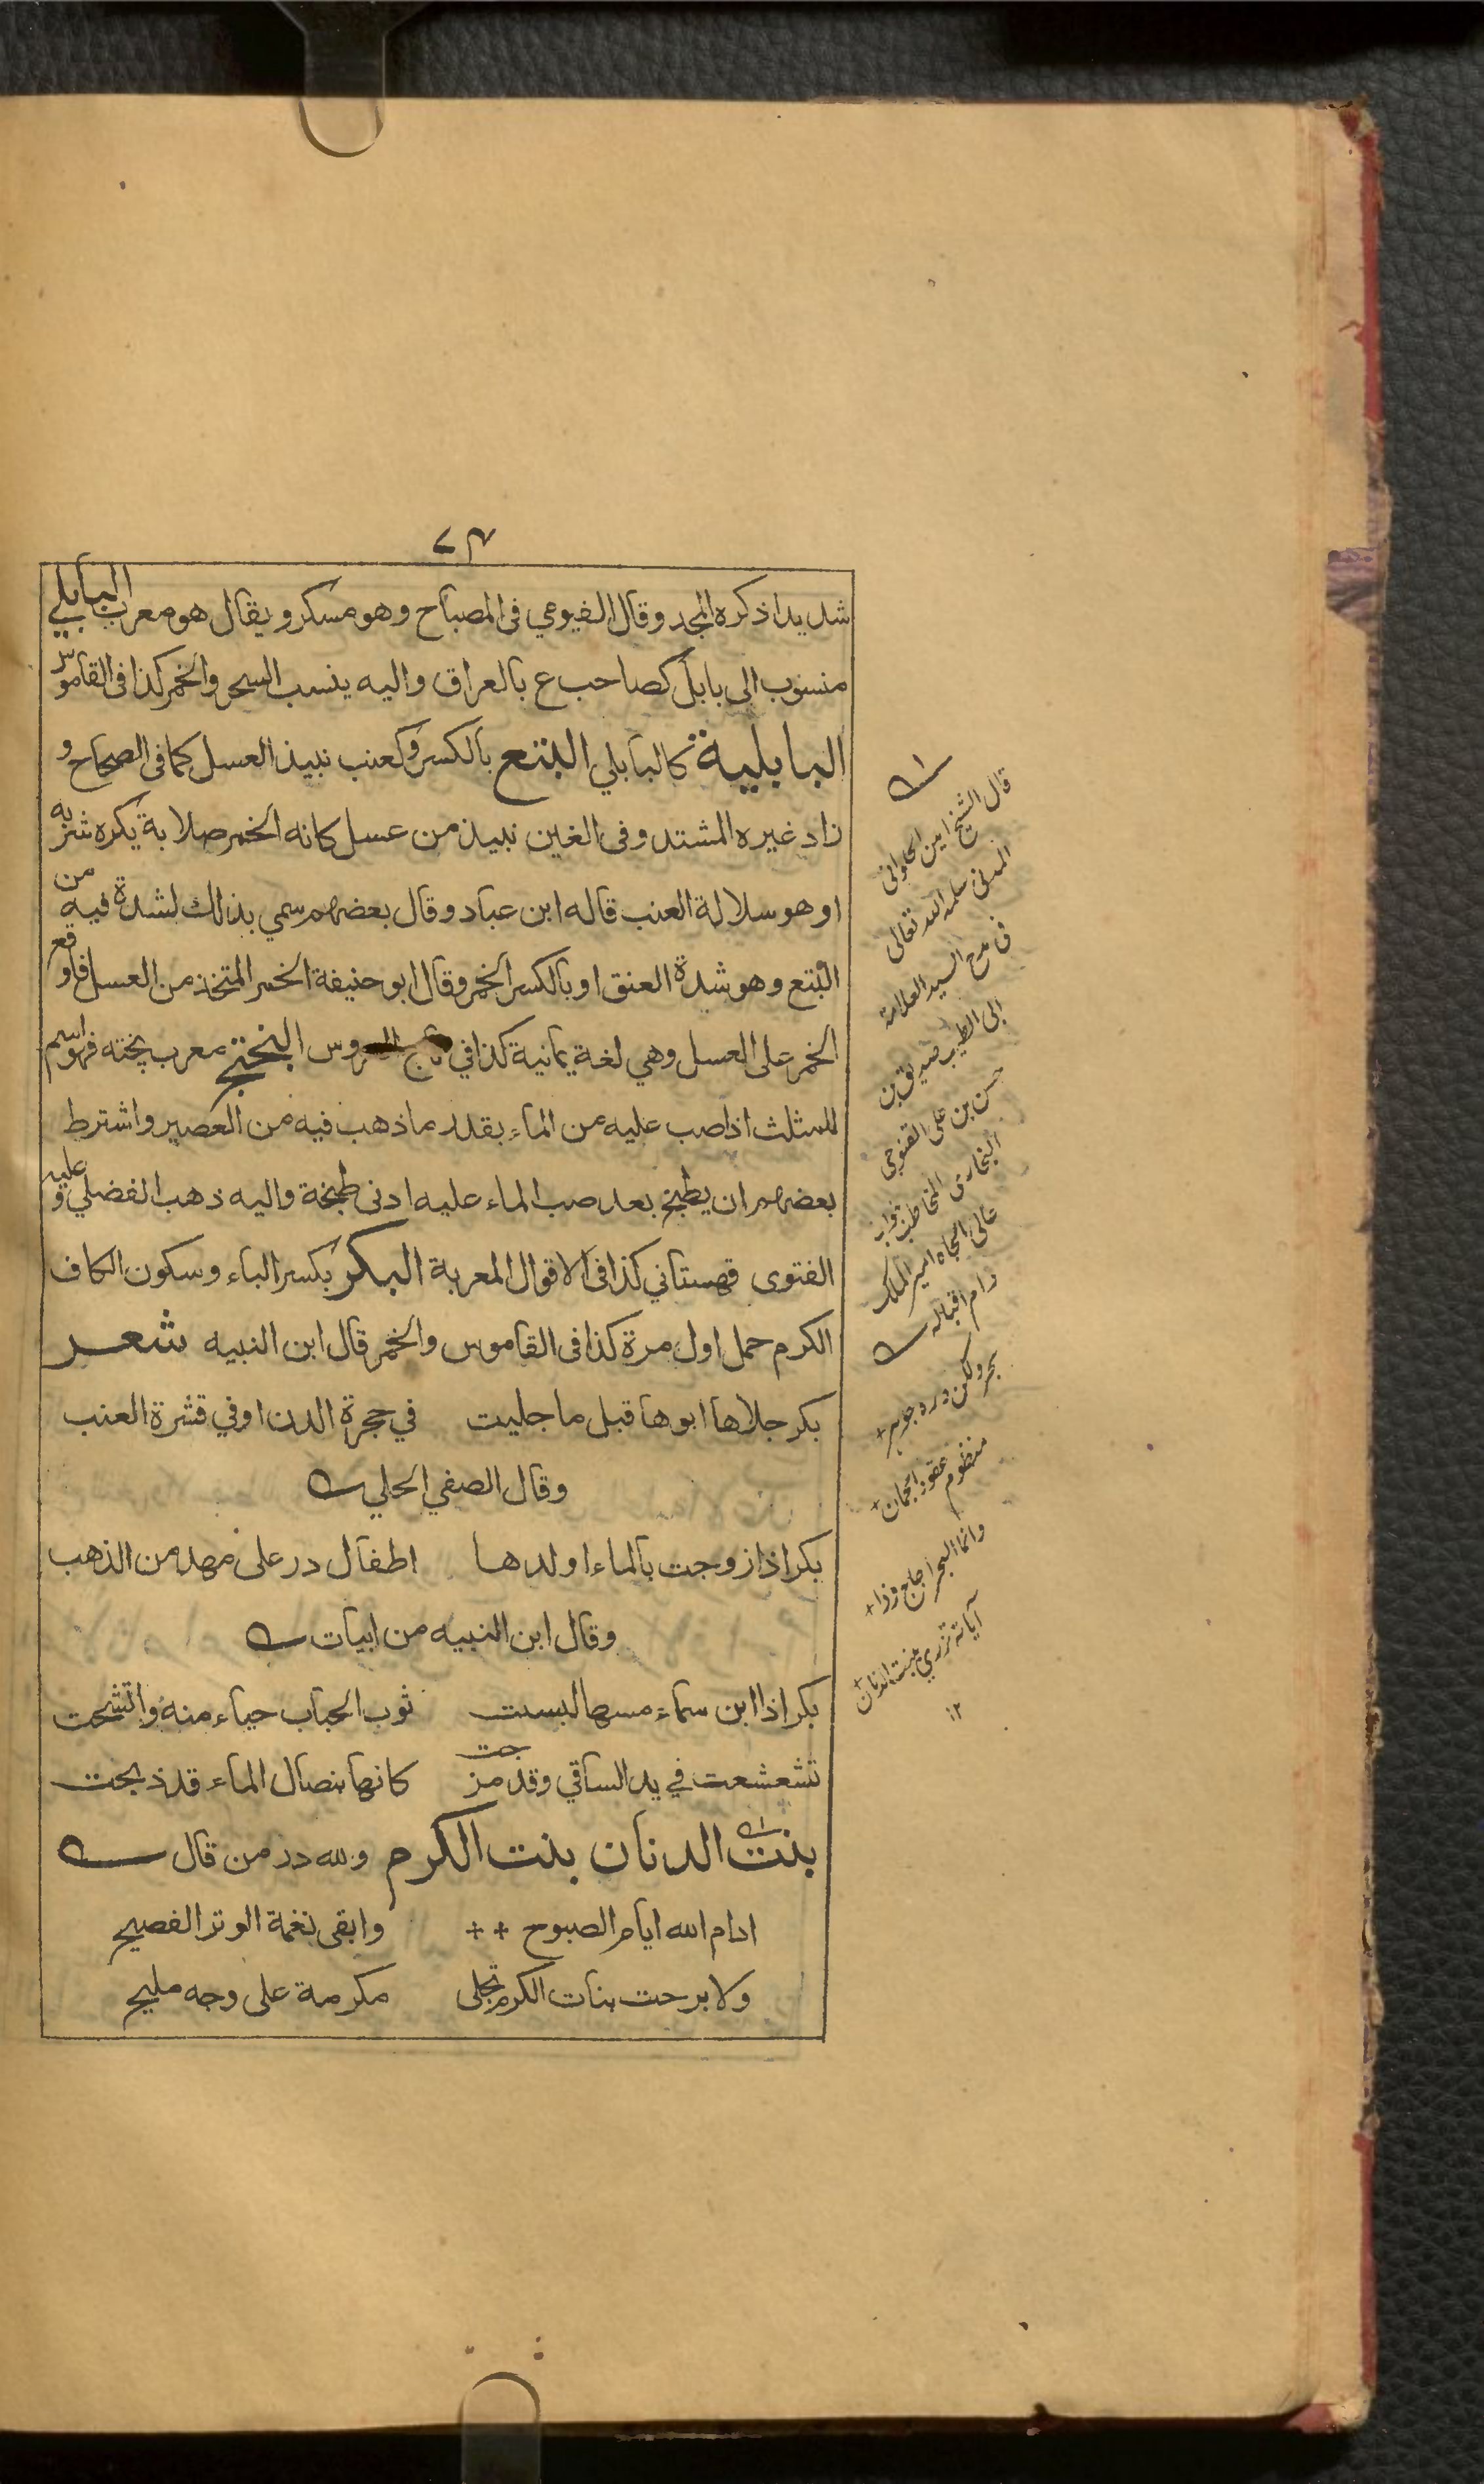 ٧٣
شديدا ذكره المجد وقال الفيومي فى المصباح وهو مسكر ويقال هو معرب البابلي
منسوب الى بابل كصاحب ع بالعراق واليه ينسب السحر والخمر كذا فى القاموس
البابلية كالبابلي البتع بالكسر وكعنب نبيذ العسل كما فى الصحاح و
زاد غيره المشتد وفى الغين نبيذ من عسل كانه الخمر صلابة يكره شربه
او هو سلالة العنب قاله ابن عباد وقال بعضهم سمي بذلك لشدة فيه من
البتع وهو شدة العنق او بالكسر الخمر وقال ابو حنيفة الخمر المتخذ من العسل فاوقع
الخمر على العسل وهي لغة يمانية كذا في تاج العروس البختج معرب پخته فهو اسم
للمثلث اذا صب عليه من الماء بقدر ما ذهب فيه من العصير واشترط
بعضهم ان يطبخ بعد صب الماء عليه ادنى طبخة واليه ذهب الفضلي وعليه
الفتوى قهستاني كذا فى الاقوال المعربة البكر بكسر الباء وسكون الكاف
الكرم حمل اول مرة كذا فى القاموس والخمر قال ابن النبيه شعر
بكر جلاها ابوها قبل ما جليت في حجرة الدن او في قشرة العنب
وقال الصفي الحلي
بكر اذا زوجت بالماء اولدها اطفال در على مهد من الذهب
وقال ابن النبيه من ابيات
بكر اذا ابن سماء مسها لبست ثوب الحباب حياء منه واتشحت
تشعشعت في يد الساقي وقد مزجت كانها بنصال الماء قد ذبحت
بنت الدنان بنت الكرم ولله در من قال
ادام الله ايام الصبوح ++ وابقى نغمة الوتر الفصيح
ولا برحت بنات الكرم تجلى مكرمة على وجه مليح
قال الشيخ امين الحلوانى
المدنى سلمه الله تعالى
فى مدح السيد العلامة
ابى الطيب صديق بن
حسن بن على القنوجى
البخارى المخاطب بنواب
عالى الجاه امير الملك
دام اقباله
بحر ولكن دره جوهر +
منظوم عقود الجمان +
وانما البحر اجاج وذا +
آياته تزري ببنت الدنان +
١٢